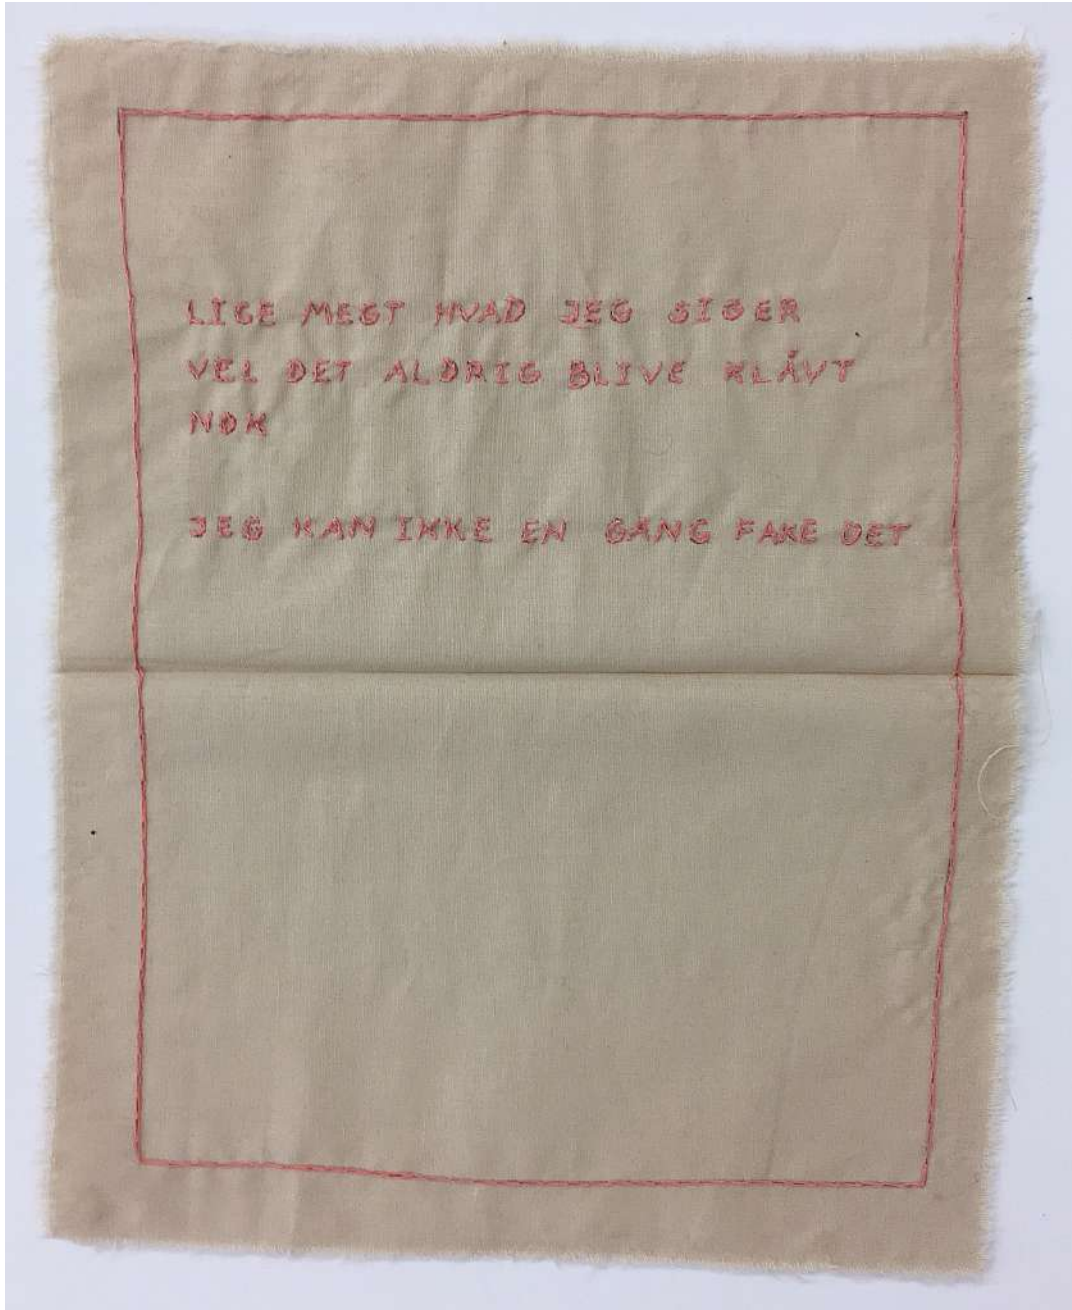 LIGE MEGT HVAD JEG SIGER
VEL DET ALDRIG BLIVE KLÅVT
NOK
JEG KAN IKKE EN GANG FAKE DET